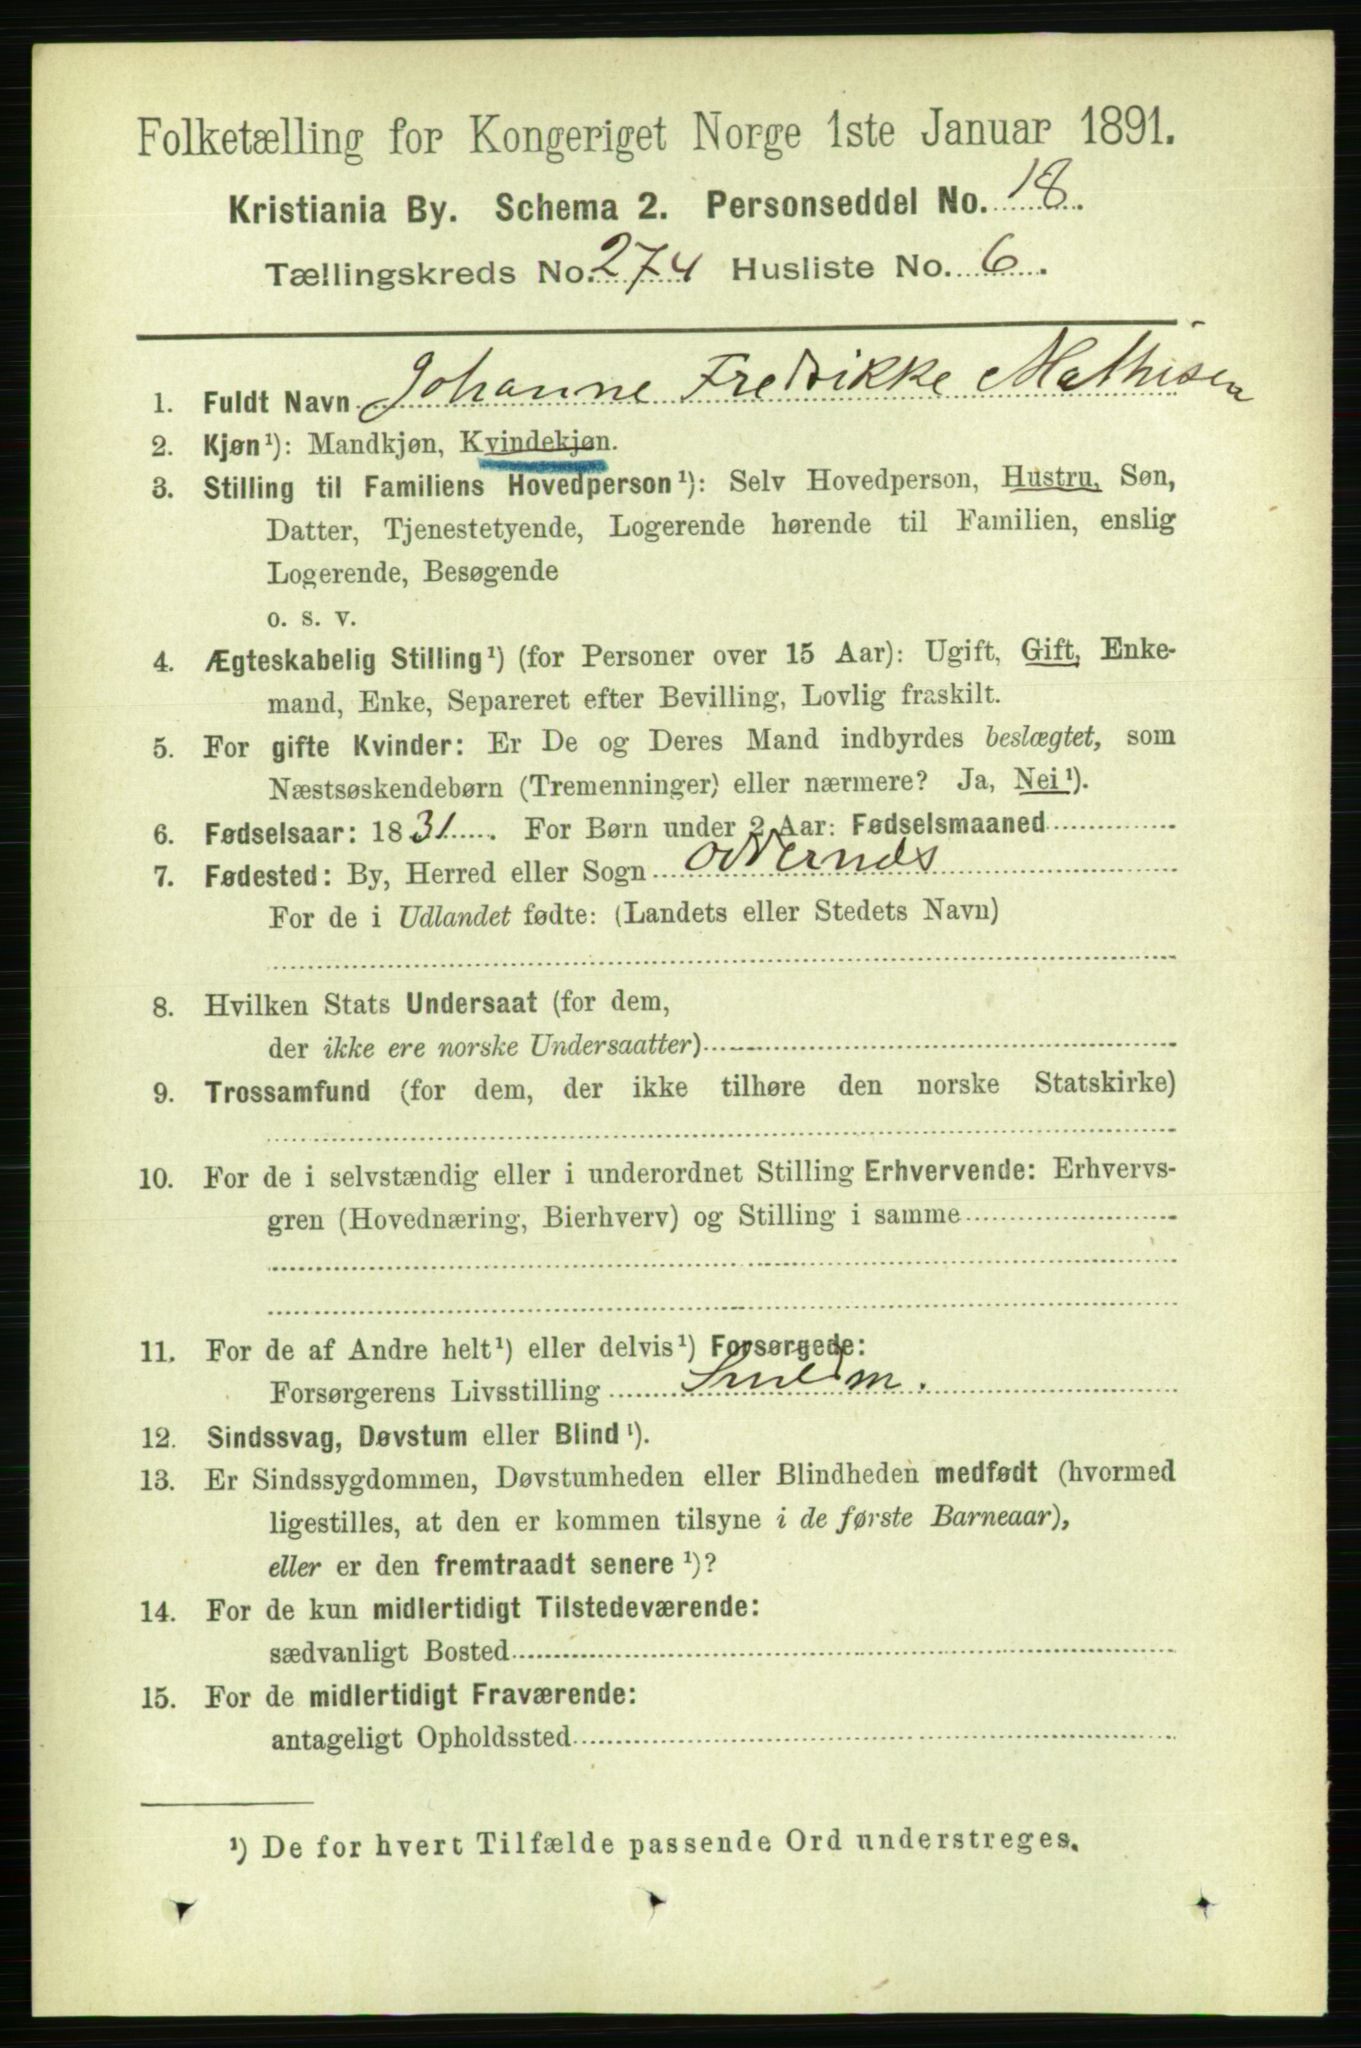 Folketælling for Kongeriget Norge 1ste Januar 1891.
Kristiania By. Schema 2. Personseddel No. 18.
Tællingskreds No. 274 Husliste No. 6.
1. Fuldt Navn Johanne Fredrikke Mathisen
2. Kjøn¹): Mandkjøn, Kvindekjøn.
3. Stilling til Familiens Hovedperson¹): Selv Hovedperson, Hustru, Søn,
Datter, Tjenestetyende, Logerende hørende til Familien, enslig
Logerende, Besøgende
o. s. v.
4. Ægteskabelig Stilling¹) (for Personer over 15 Aar): Ugift, Gift, Enke-
mand, Enke, Separeret efter Bevilling, Lovlig fraskilt.
5. For gifte Kvinder: Er De og Deres Mand indbyrdes beslægtet, som
Næstsøskendebørn (Tremenninger) eller nærmere? Ja, Nei¹).
6. Fødselsaar: 1831. For Børn under 2 Aar: Fødselsmaaned
7. Fødested: By, Herred eller Sogn
For de i Udlandet fødte: (Landets eller Stedets Navn)
8. Hvilken Stats Undersaat (for dem,
der ikke ere norske Undersaatter)
9. Trossamfund (for dem, der ikke tilhøre den norske Statskirke)
10. For de i selvstændig eller i underordnet Stilling Erhvervende: Erhvervs-
gren (Hovednæring, Bierhverv) og Stilling i samme
11. For de af Andre helt¹) eller delvis¹) Forsørgede:
Forsørgerens Livsstilling
12. Sindssvag, Døvstum eller Blind¹).
13. Er Sindssygdommen, Døvstumheden eller Blindheden medfødt (hvormed
ligestilles, at den er kommen tilsyne i de første Barneaar),
eller er den fremtraadt senere¹)?
14. For de kun midlertidigt Tilstedeværende:
sædvanligt Bosted
15. For de midlertidigt Fraværende:
antageligt Opholdssted
¹) De for hvert Tilfælde passende Ord understreges.